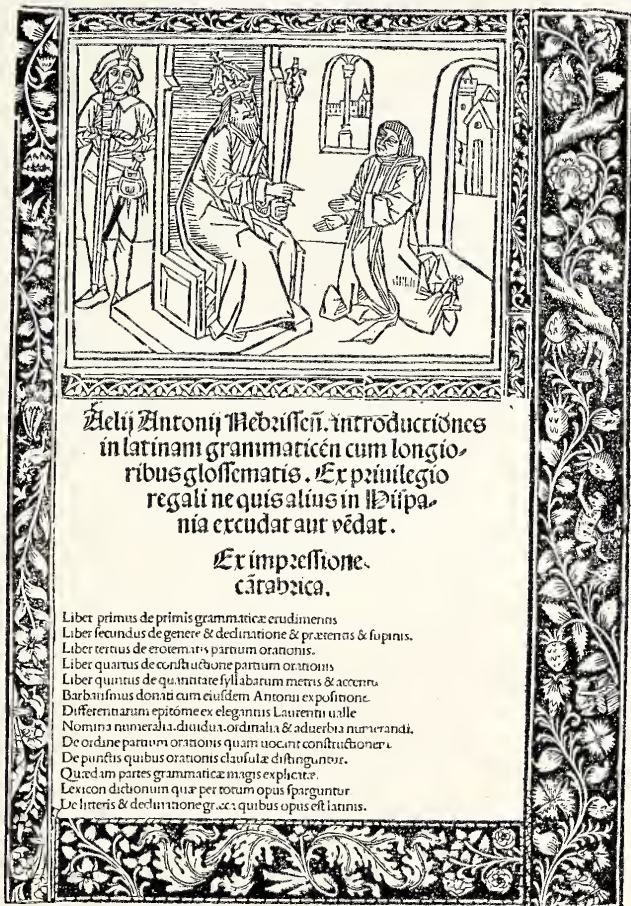 Aelij Antonij Nebrisseñ. introductiões
in latinam grammaticén cum longio-
ribus glossematis. Ex priuilegio
regali ne quis alius in Hispa-
nia excudat aut vēdat.
Ex impressione
cātabrica.
Liber primus de primis grammaticæ erudimentis
Liber secundus de genere & declinatione & præteritis & supinis.
Liber tertius de erotematis partium orationis.
Liber quartus de constructione partium orationis
Liber quintus de quantitate syllabarum metris & accentu
Barbarismus donati cum eiusdem Antonii expositione
Differentiarum epitóme ex elegantiis Laurentii ualle
Nomina numeralia. diuidua. ordinalia & aduerbia numerandi.
De ordine partium orationis quam uocant constructionem
De punctis quibus orationis clausulæ distinguntur.
Quædam partes grammaticæ magis explicitæ.
Lexicon dictionum quæ per totum opus sparguntur
De litteris & declinatione græca quibus opus est latinis.